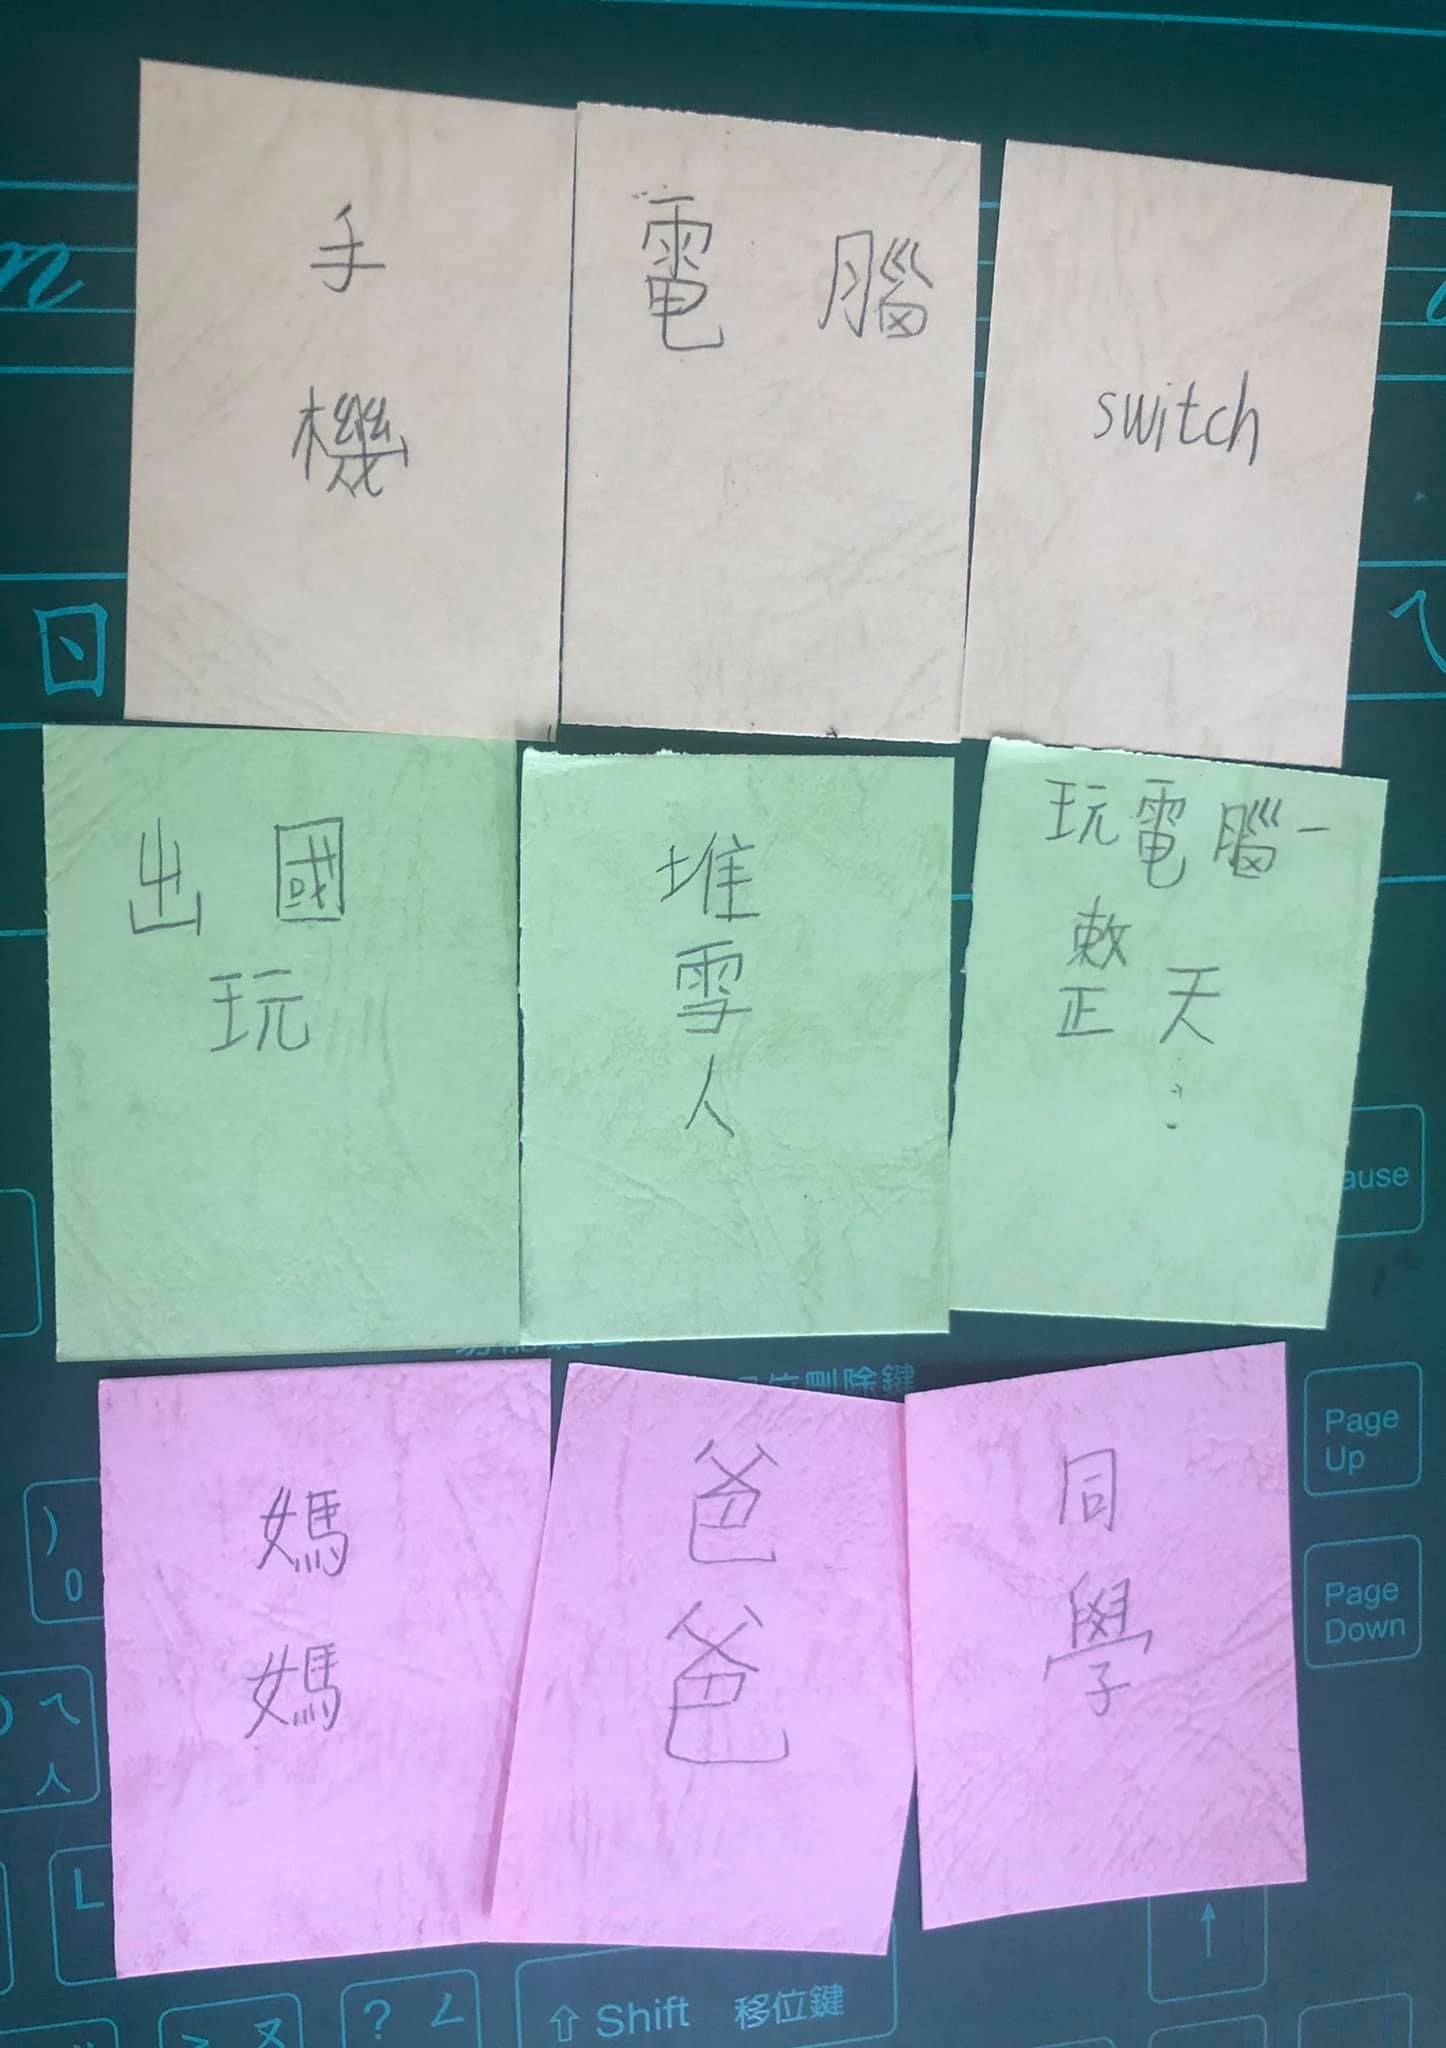 手
機
電 腦
switch
出 國
玩
堆
雪
人
玩電腦一
整 天...
媽
媽
爸
爸
同
學
n
ㄖ
ㄟ
ause
位刪除鍵
Page
Up
Page
Down
)
0
ㄟ
ㄣ
? ㄥ
ㄡ
⇧ Shift 移位鍵
↑